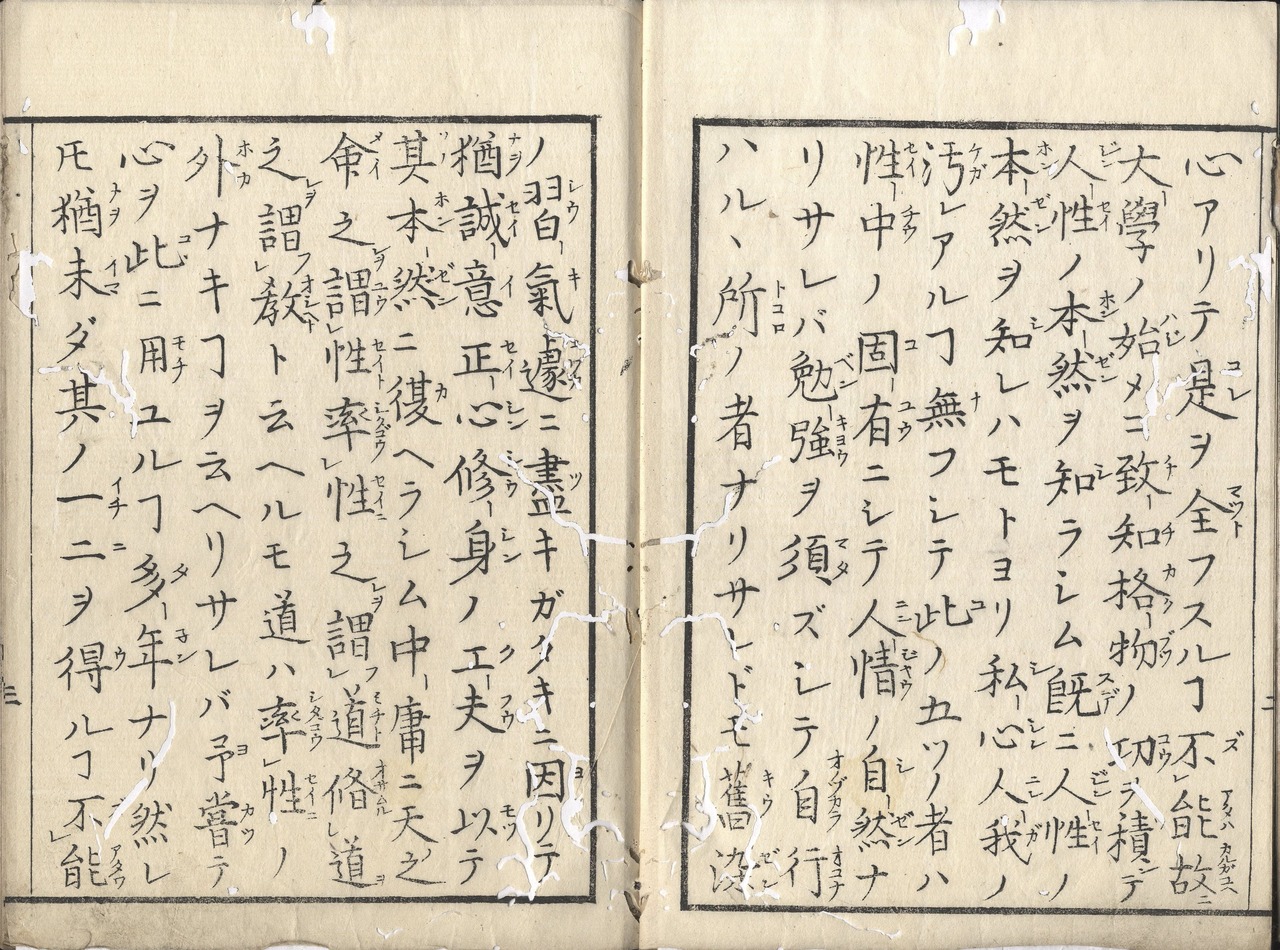 心アリテ是ヲ全フスルヿ不能故ニ
大學ノ始メニ致知格物ノ功ヲ積ンテ
人性ノ本然ヲ知ラシム既ニ人性ノ
本然ヲ知レハモトヨリ私心人我ノ
汚レアルヿ無フシテ此ノ五ツノ者ハ
性中ノ固有ニシテ人情ノ自然ナ
リサレバ勉強ヲ須ズシテ自行
ハルヽ所ノ者ナリサレドモ舊染
ノ習氣遽ニ盡キガタキニ因リテ
猶誠意正心修身ノ工夫ヲ以テ
其本然ニ復ヘラシム中庸ニ天之
命之謂性率性之謂道修道
之謂教ト云ヘルモ道ハ率性ノ
外ナキヿヲ云ヘリサレバ予嘗テ
心ヲ此ニ用ユルヿ多年ナリ然レ
𪜈猶未ダ其ノ一二ヲ得ルヿ不能
二
三